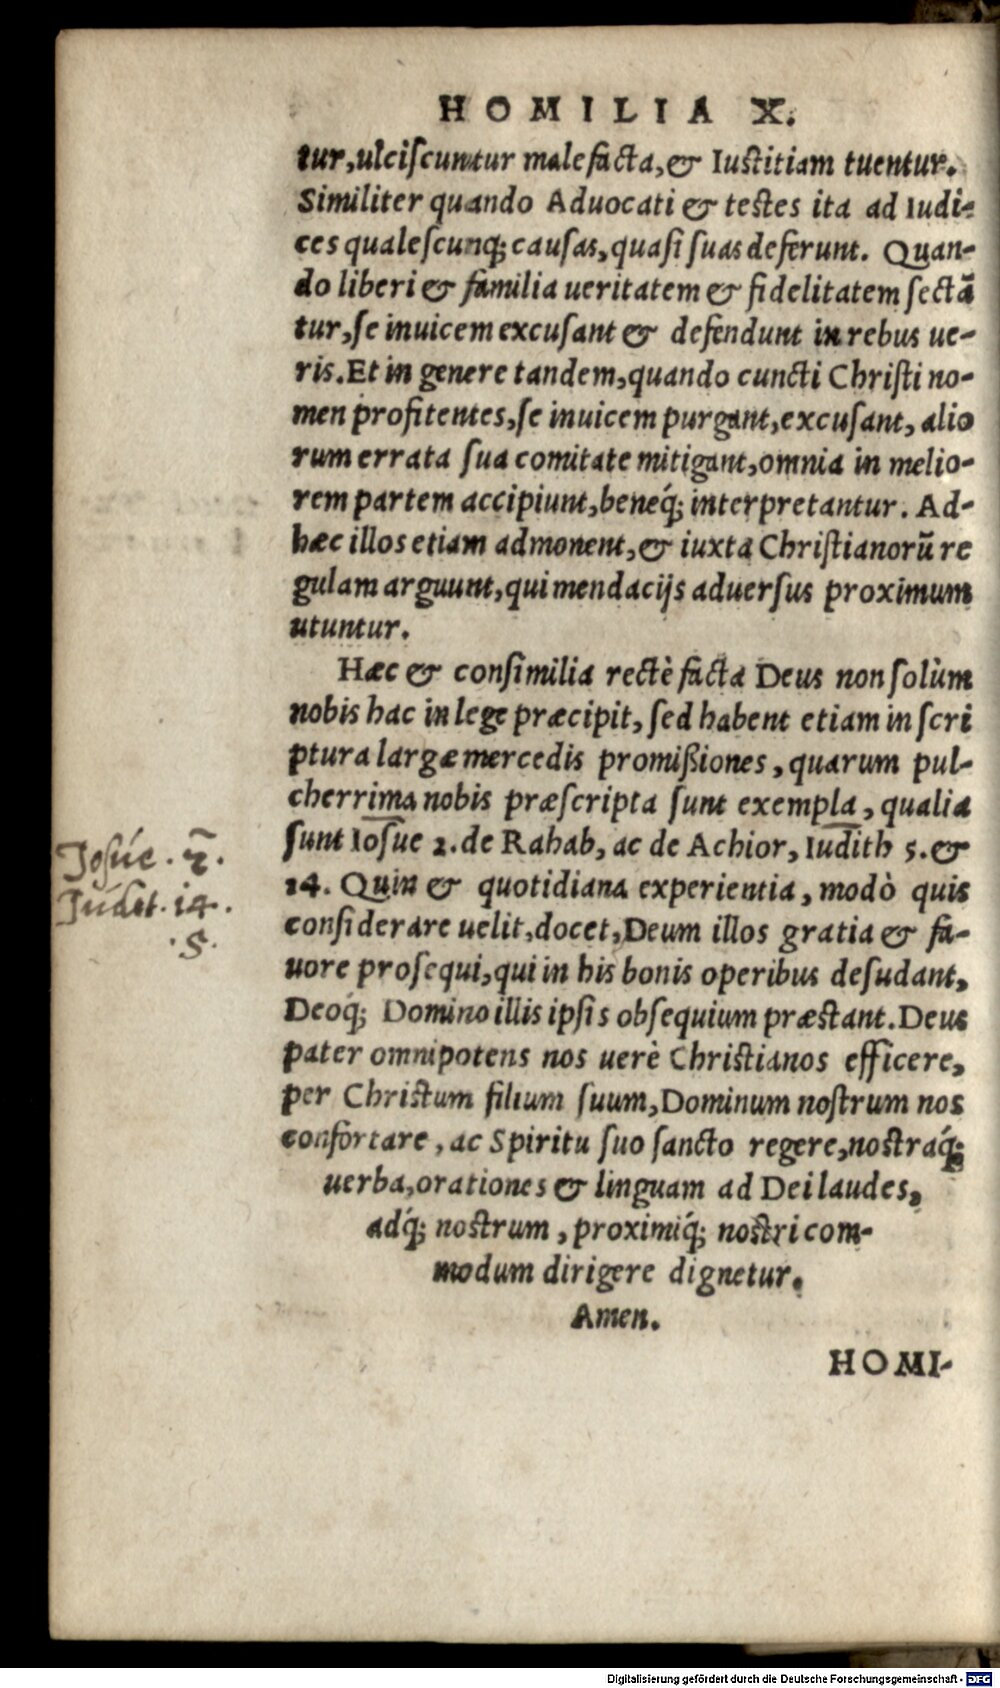 HOMILIA X.
tur, ulciscuntur malefacta, & Iustitiam tuentur.
Similiter quando Aduocati & testes ita ad Iudi-
ces qualescunq; causas, quasi suas deferunt. Quan-
do liberi & familia ueritatem & fidelitatem sectã
tur, se inuicem excusant & defendunt in rebus ue-
ris. Et in genere tandem, quando cuncti Christi no-
men profitentes, se inuicem purgant, excusant, alio
rum errata sua comitate mitigant, omnia in melio-
rem partem accipiunt, beneq́; interpretantur. Ad-
hæc illos etiam admonent, & iuxta Christianorũ re
gulam arguunt, qui mendacijs aduersus proximum
utuntur.
Hæc & consimilia rectè facta Deus non solùm
nobis hac in lege præcipit, sed habent etiam in scri
ptura largæ mercedis promißiones, quarum pul-
cherrima nobis præscripta sunt exempla, qualia
sunt Iosue 2. de Rahab, ac de Achior, Iudith 5. &
14. Quin & quotidiana experientia, modò quis
considerare uelit, docet, Deum illos gratia & fa-
uore prosequi, qui in his bonis operibus desudant,
Deoq́; Domino illis ipsis obsequium præstant. Deus
pater omnipotens nos uerè Christianos efficere,
per Christum filium suum, Dominum nostrum nos
confortare, ac Spiritu suo sancto regere, nostraq́;
uerba, orationes & linguam ad Dei laudes,
adq́; nostrum, proximiq́; nostri com-
modum dirigere dignetur.
Amen.
HOMI-
Josúe. 2.
Judit. 14.
.5.
Digitalisierung gefördert durch die Deutsche Forschungsgemeinschaft - DFG